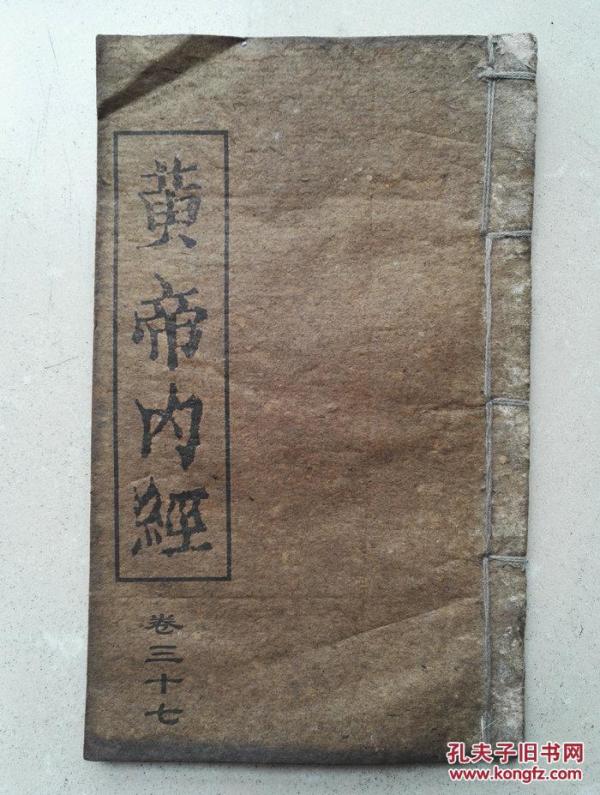 黄帝内經
卷三十七
孔夫子旧书网
www.kongfz.com